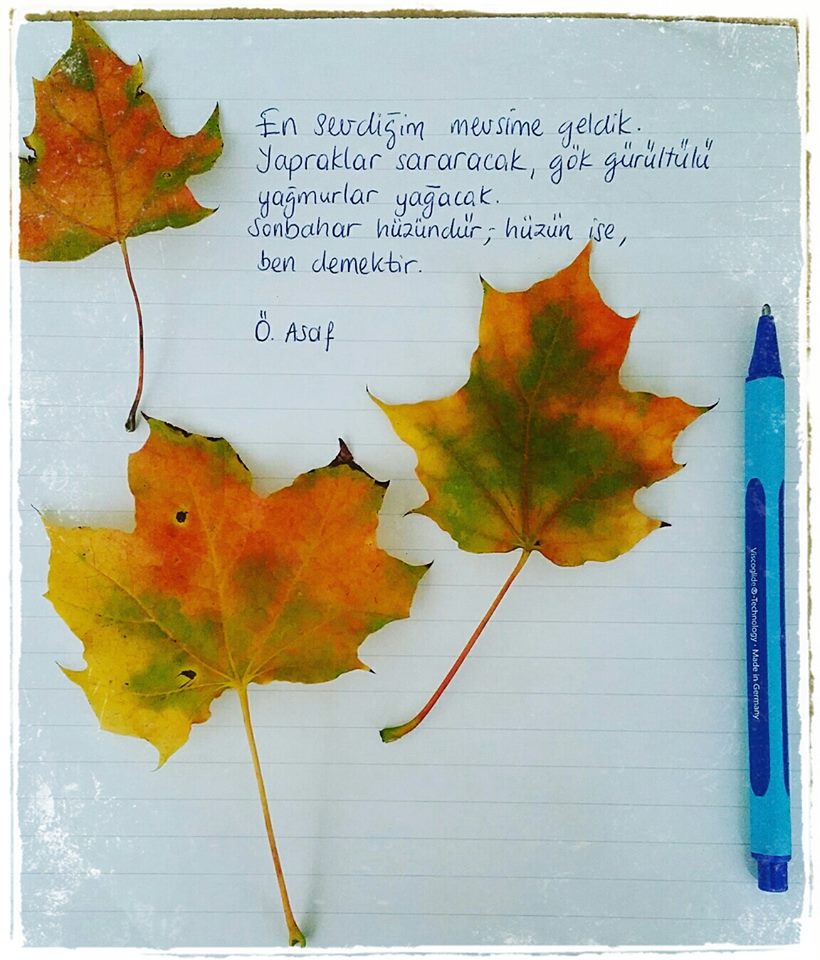 En sevdiğim mevsime geldik.
Yapraklar sararacak, gök gürültülü
yağmurlar yağacak.
Sonbahar hüzündür; hüzün ise,
ben demektir.
Ö. Asaf
Viscoglide®-Technology · Made in Germany